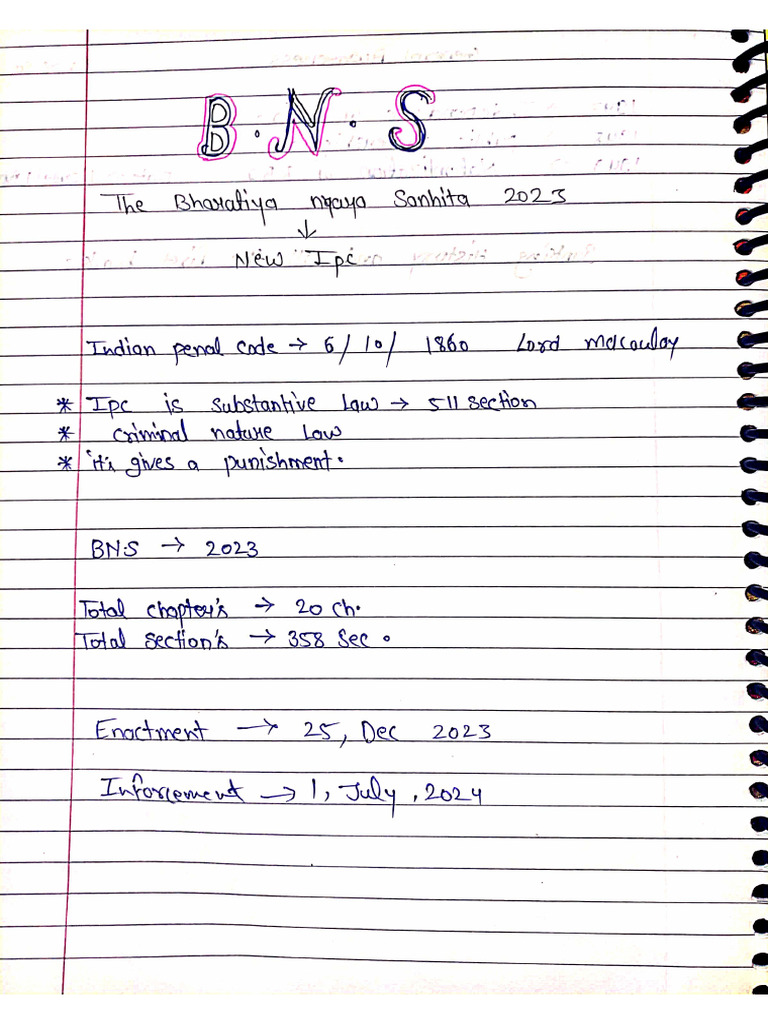 B.N.S
The Bharatiya nyaya Sanhita 2023
↓
New Ipc
Indian penal code → 6/10/ 1860 Lord macaulay
* Ipc is substantive Law → 511 section
* criminal nature Law
* iti gives a punishment.
BNS → 2023
Total chapter's → 20 ch.
Total section's → 358 Sec.
Enactment → 25, Dec 2023
Inforcement → 1, July, 2024